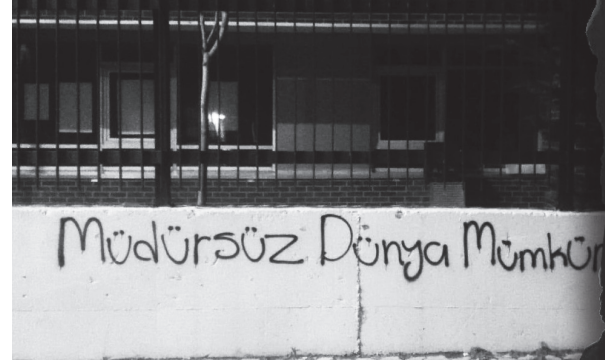 Müdürsüz Dünya Mümkün